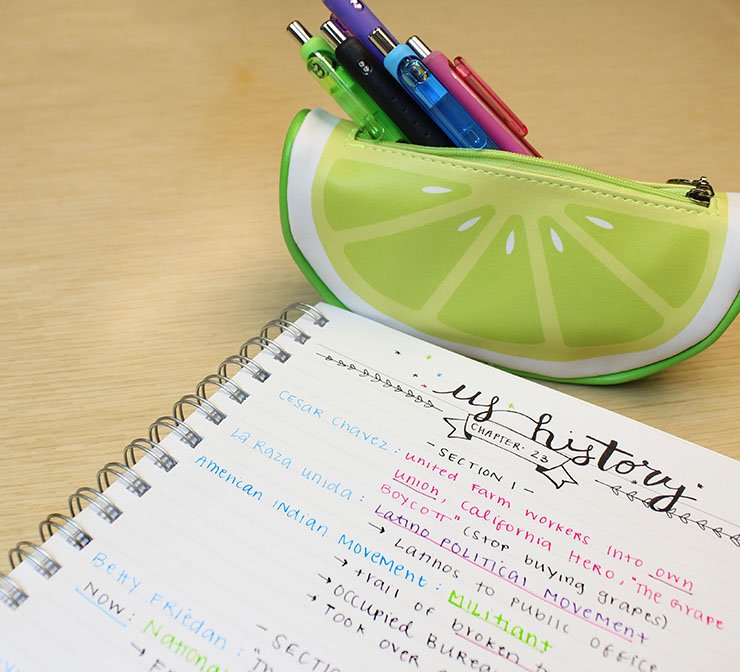 us history
CHAPTER. 23
- SECTION 1 -
CESAR CHAVEZ: united Farm workers into own
union, California Hero, "The Grape
BOYCOTT" (stop buying grapes)
La Raza unida: Latino POLITICAL MOVEMENT
→ Latinos to public office
American Indian Movement: MILITIANT
→ trail of broken
→ occupied Bureau
→ TOOK over
- SECTION
Betty Friedan: "The
NOW: National